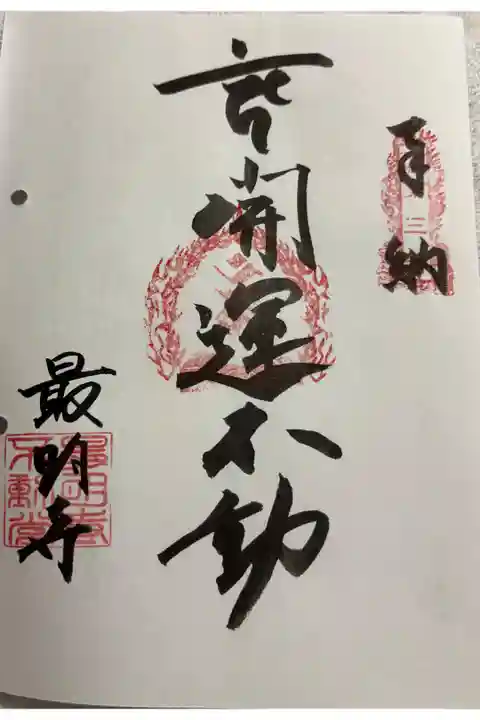 奉納
開運不動
最明寺
最明寺
不動堂